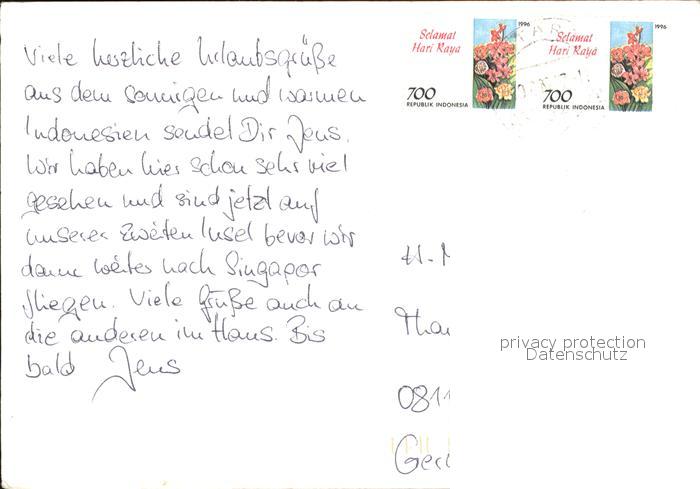 Viele herzliche Urlaubsgrüße
aus dem sonnigen und warmen
Indonesien sendet Dir Jens.
Wir haben hier schon sehr viel
gesehen und sind jetzt auf
unserer zweiten Insel bevor wir
dann weiter nach Singapor
fliegen. Viele Grüße auch an
die anderen im Haus. Bis
bald Jens
Selamat
Hari Raya
1996
700
REPUBLIK INDONESIA
Selamat
Hari Raya
1996
700
REPUBLIK INDONESIA
privacy protection
Datenschutz